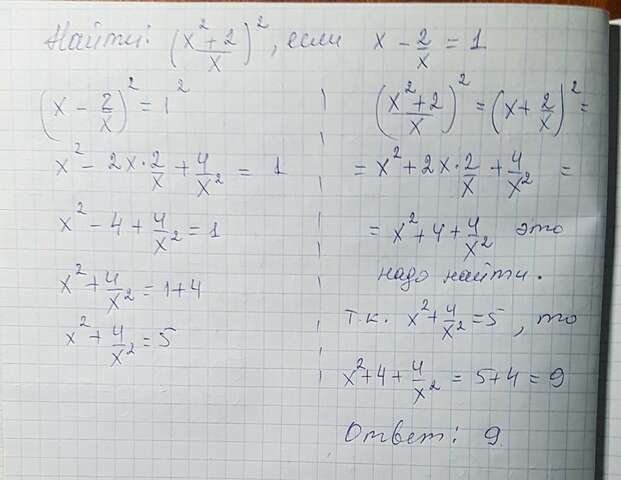 Найти: (x²+2/x)², если x - 2/x = 1
(x - 2/x)² = 1²
x² - 2x·2/x + 4/x² = 1
x² - 4 + 4/x² = 1
x² + 4/x² = 1+4
x² + 4/x² = 5
(x²+2/x)² = (x + 2/x)² =
= x² + 2x·2/x + 4/x² =
= x² + 4 + 4/x² это
надо найти.
т.к. x² + 4/x² = 5, то
x² + 4 + 4/x² = 5+4 = 9
Ответ: 9